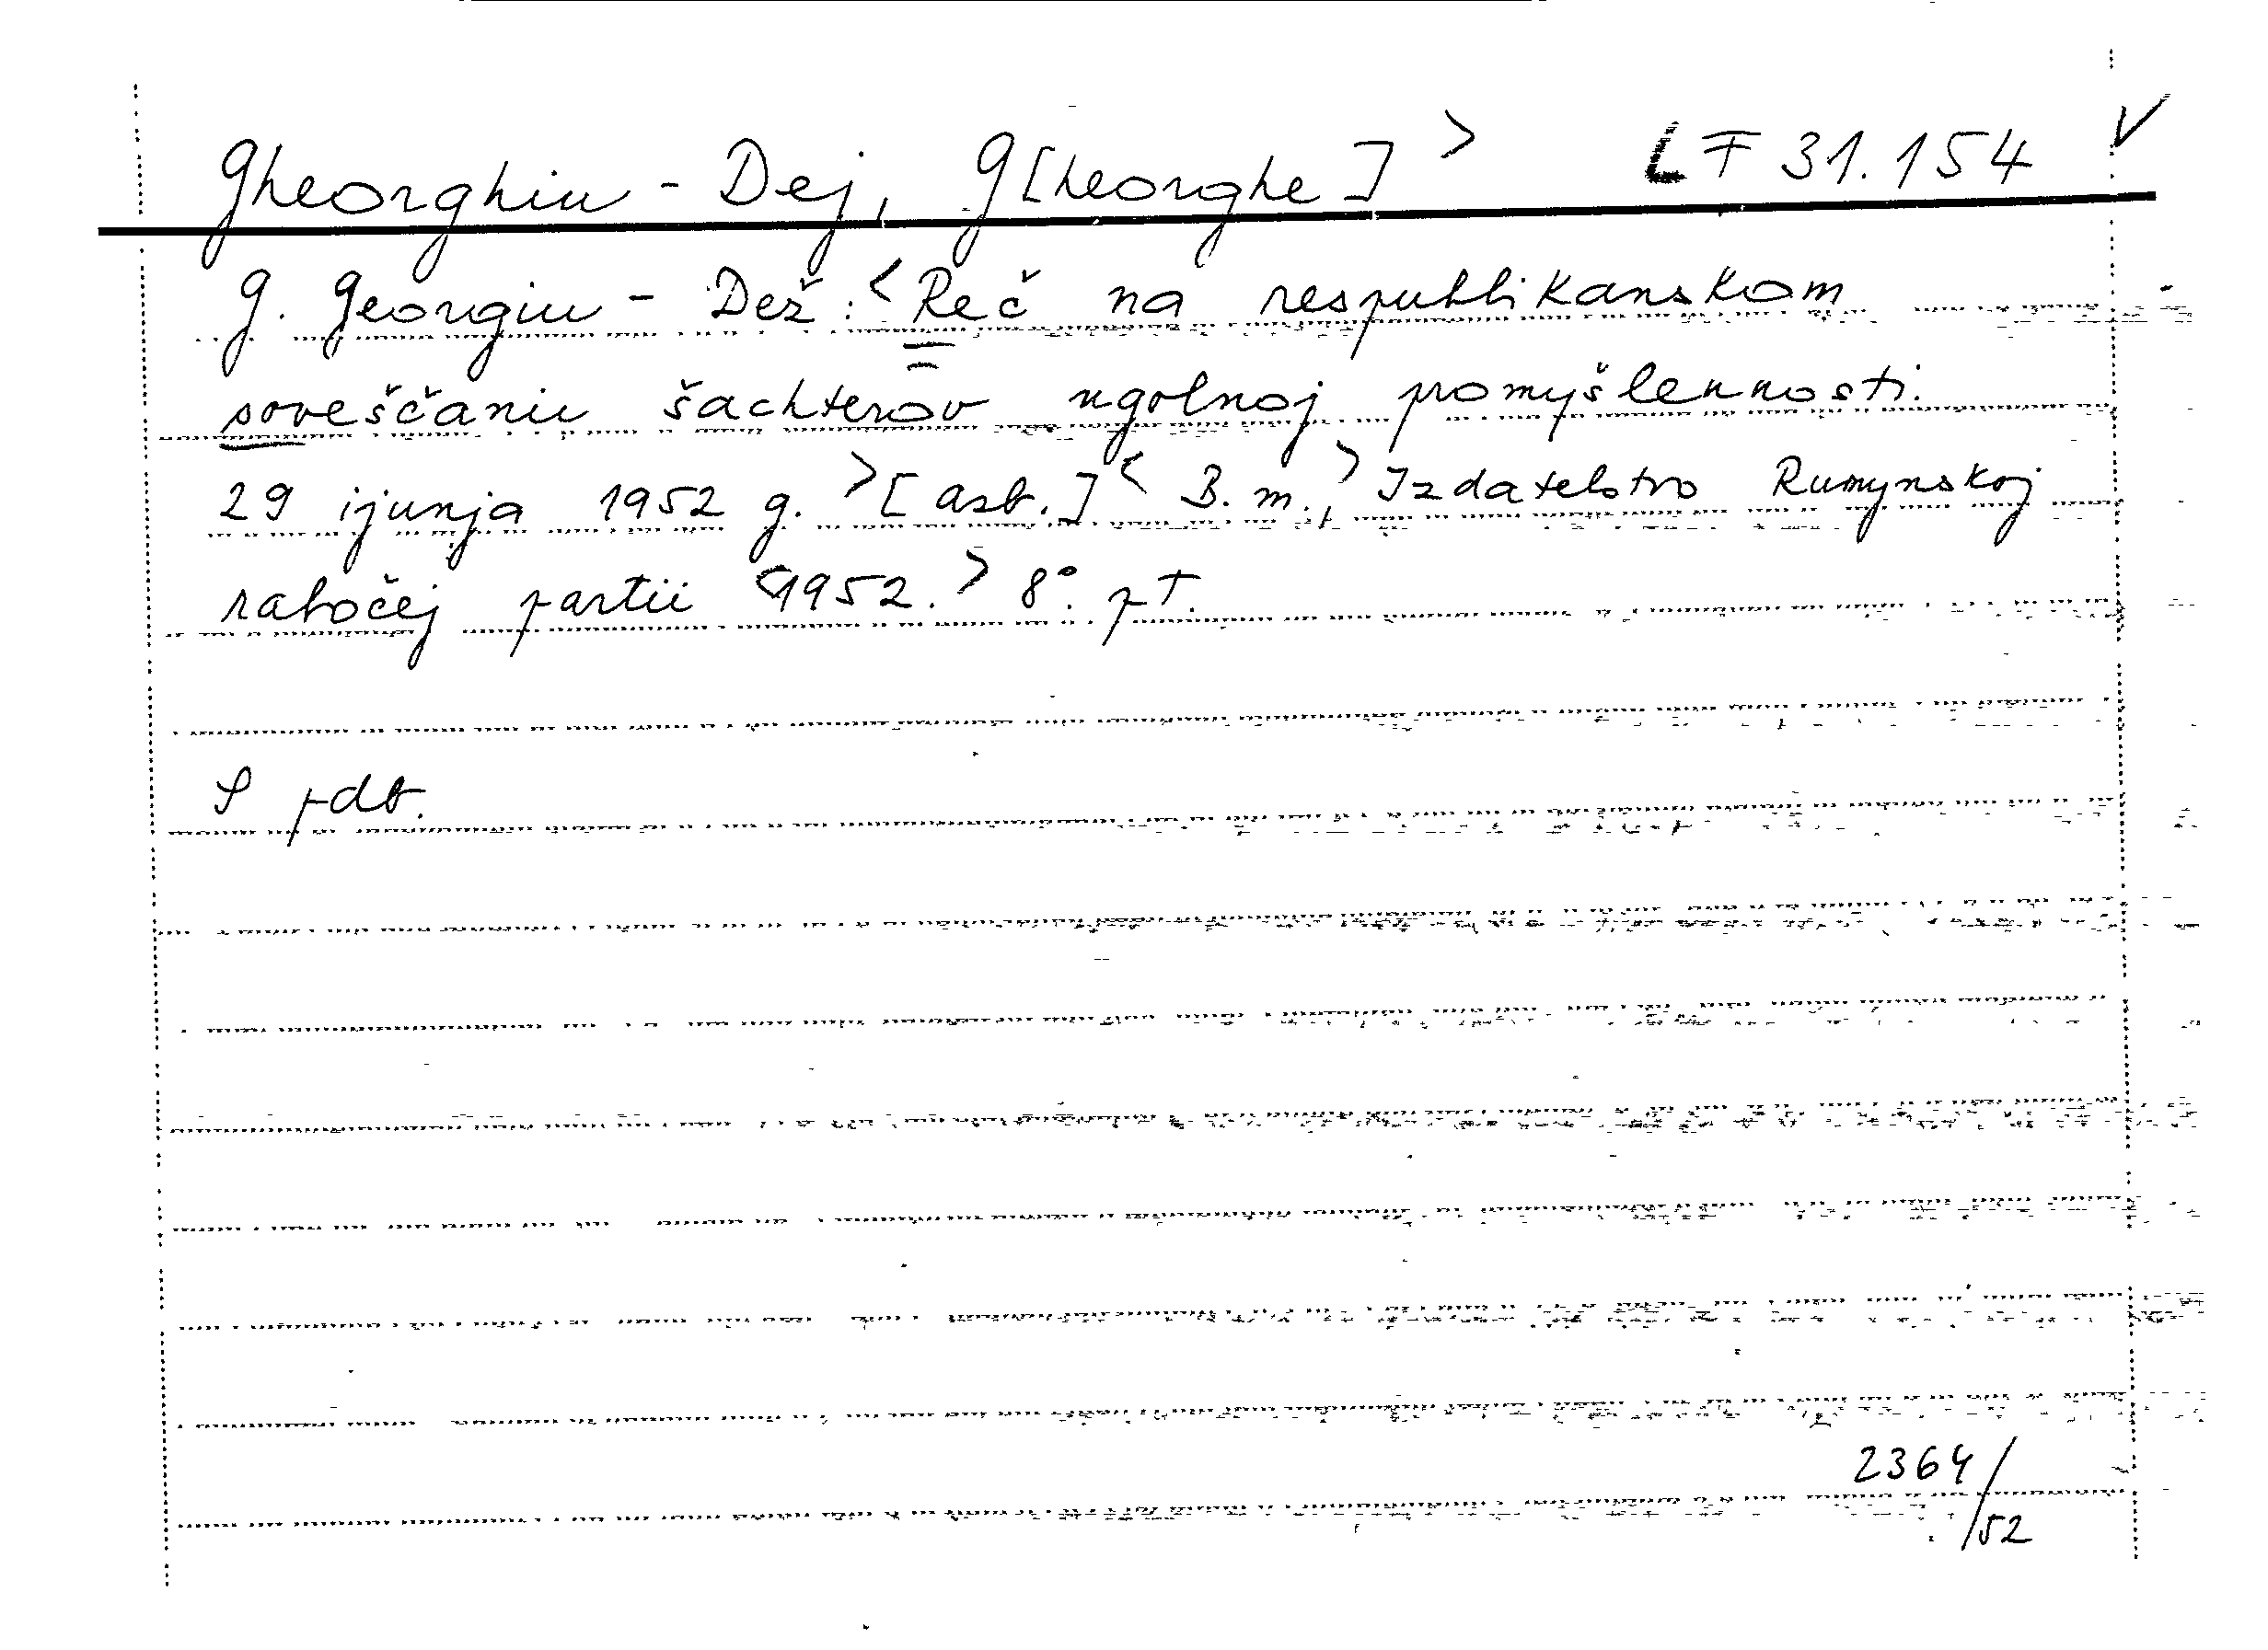 Gheorghiu - Dej, G[heorghe] > LF 31.154 V
G. Georgiu - Dež: < Reč na respublikanskom
soveščanii šachterov ugolnoj promyšlennosti.
29 ijunja 1952 g. > [azb.] < B. m., > Izdatelstvo Rumynskoj
rabočej partii < 1952. > 8°. pT.
S pdb.
2364/52